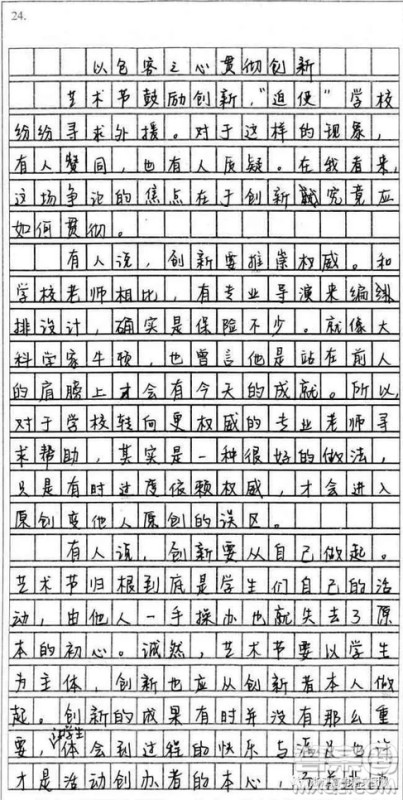 24.
以包容之心贯彻创新
艺术节鼓励创新，“迫使”学校
纷纷寻求外援。对于这样的现象，
有人赞同，也有人质疑。在我看来，
这场争论的焦点在于创新究竟应
如何贯彻。
有人说，创新要推崇权威。和
学校老师相比，有专业导演来编练
排设计，确实是保险不少。就像大
科学家牛顿，也曾言他是站在前人
的肩膀上才会有今天的成就。所以，
对于学校转向更权威的专业老师寻
求帮助，其实是一种很好的做法，
只是有时过度依赖权威，才会进入
原创变他人原创的误区。
有人说，创新要从自己做起。
艺术节归根到底是学生们自己的活
动，由他人一手操办也就失去了原
本的初心。诚然，艺术节要以学生
为主体，创新也应从创新者本人做
起。创新的成果有时并没有那么重
要，让学生体会到过程的快乐与满足也许
才是活动创办者的本心，